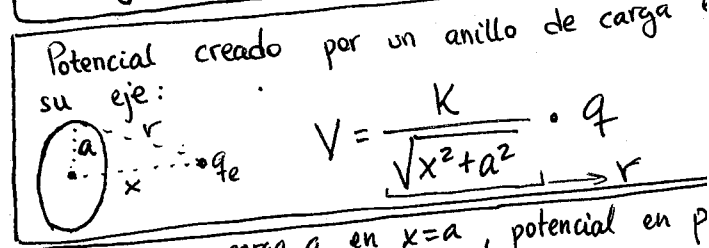 Potencial creado por un anillo de carga
su eje:
r
a
x
qe
V = K / √(x²+a²) · q
→ r
a en x=a, potencial en